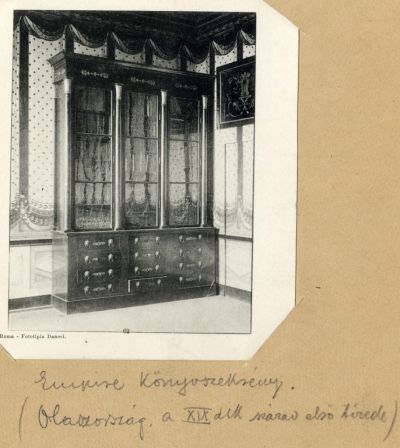 Roma - Fototipia Danesi.
Empire Könyvszekrény.
(Olaszország, a XIX dik század első tizede)